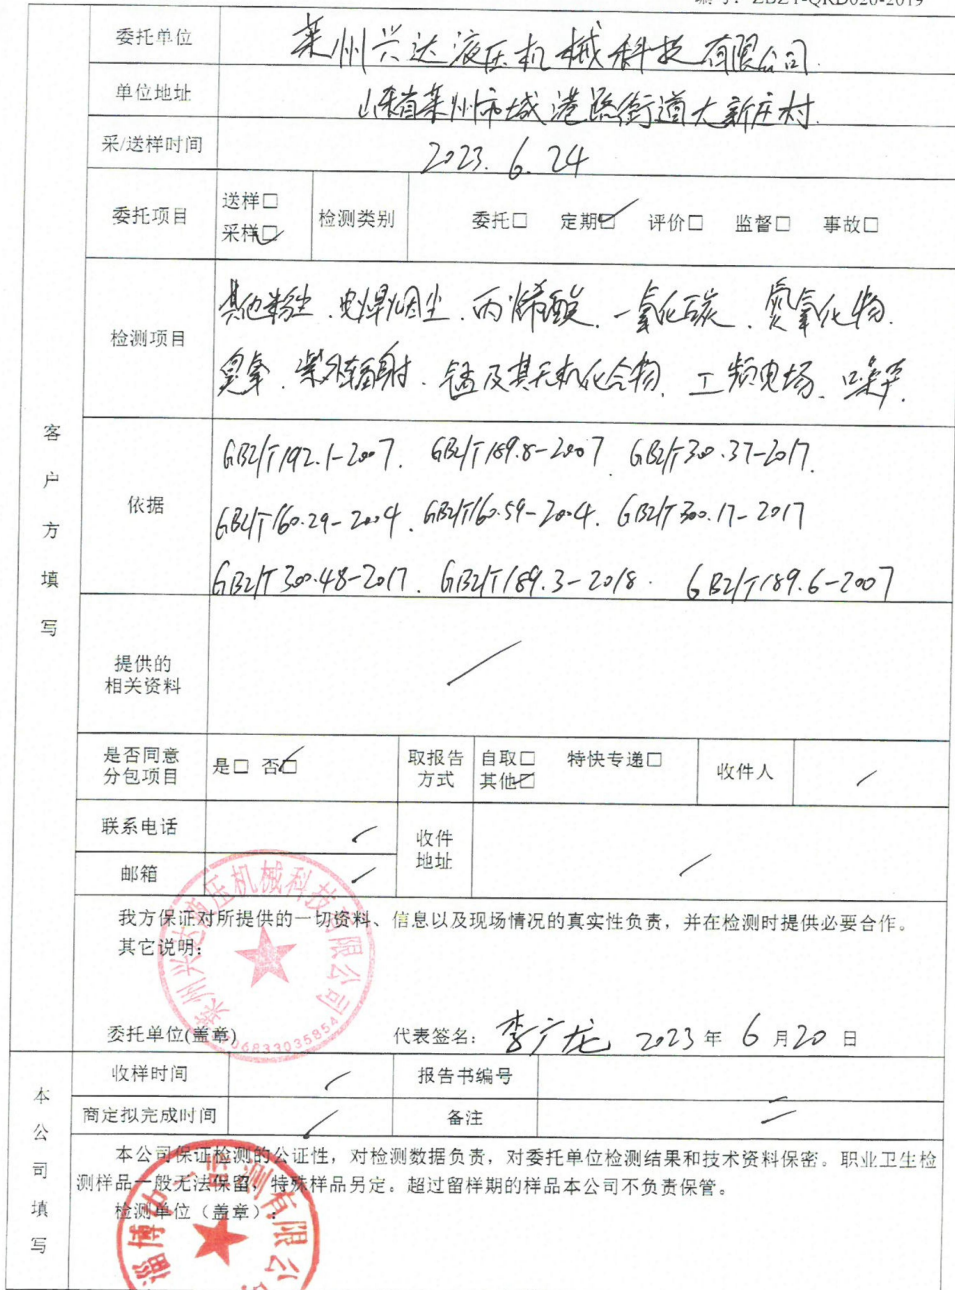 编号：ZBZY-QRD026-2019
客户方填写
委托单位 莱州兴达液压机械科技有限公司
单位地址 山东省莱州市城港路街道大新庄村
采/送样时间 2023.6.24
委托项目 送样□ 采样☑ 检测类别 委托□ 定期☑ 评价□ 监督□ 事故□
检测项目 其他粉尘、电焊烟尘、丙烯酸、一氧化碳、氮氧化物、
臭氧、紫外辐射、锰及其无机化合物、工频电场、噪声.
依据 GBZ/T192.1-2007、GBZ/T189.8-2007、GBZ/T300.37-2017、
GBZ/T160.29-2004、GBZ/T160.59-2004、GBZ/T300.17-2017
GBZ/T300.48-2017、GBZ/T189.3-2018、GBZ/T189.6-2007
提供的
相关资料 /
是否同意
分包项目 是□ 否☑ 取报告
方式 自取□ 特快专递□
其他☑ 收件人 /
联系电话 / 收件
地址 /
邮箱 /
我方保证对所提供的一切资料、信息以及现场情况的真实性负责，并在检测时提供必要合作。
其它说明：
莱州兴达液压机械科技有限公司
06833035854
委托单位(盖章) 代表签名：李广龙 2023年6月20日
本公司填写
收样时间 / 报告书编号
商定拟完成时间 / 备注
本公司保证检测的公证性，对检测数据负责，对委托单位检测结果和技术资料保密。职业卫生检
测样品一般无法保留，特殊样品另定。超过留样期的样品本公司不负责保管。
检测单位（盖章）：